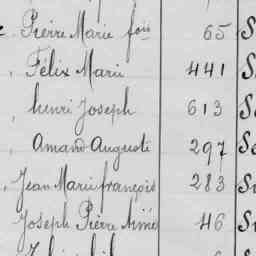 Pierre Marie fois 65 S
Félix Marie 441 S
henri Joseph 613 S
Amand Auguste 297 Se
Jean Marie françois 283 S
Joseph Pierre Aimé 46 S